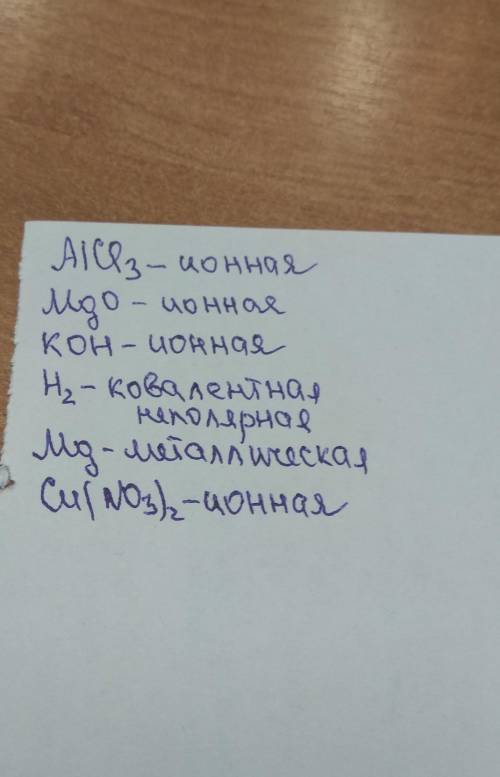 AlCl₃ – ионная
MgO – ионная
KOH – ионная
H₂ – ковалентная
неполярная
Mg – металлическая
Cu(NO₃)₂ – ионная